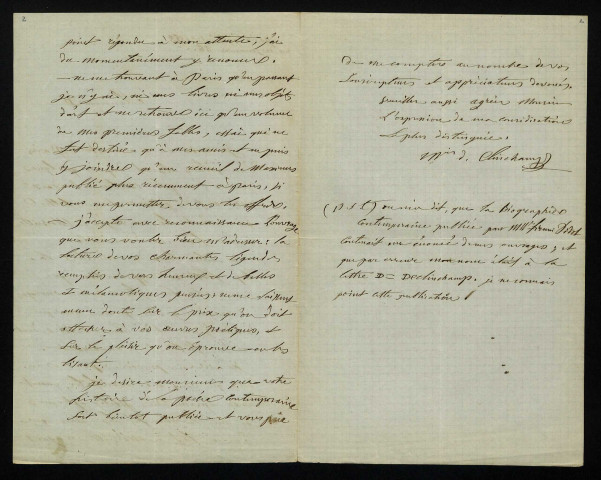 2
point répondre à mon attente, j'ai
du momentanément y renoncer.
— ne me trouvant à Paris qu'en passant
je n'y ai, ni mes livres ni mes objets
d'art et ne retrouve ici qu'un volume
de mes premières fables, mais qui ne
fut destiné qu'à mes amis et je puis
y joindre qu'un recueil de
publié plus récemment à Paris, si
vous me permettez de vous les offrir.
j'accepte avec reconnaissance l'ouvrage
que vous voulez bien m'adresser: la
lecture de vos charmantes légendes
remplies de vers heureux et de belles
et mélancoliques pensées, ne me laissent
aucun doute sur le prix qu'on doit
attacher à vos œuvres poétiques, et
sur le plaisir qu'on éprouve en les
lisant.
je désire monsieur que votre
histoire de la poésie contemporaine
soit bientôt publiée et vous prie
2
de me compter au nombre de vos
souscripteurs et appréciateurs dévoués,
veuillez aussi agréer Monsieur
l'expression de ma considération
la plus distinguée.
Mis de Clinchamp
(P. S.) on m'a dit, que la Biographie
Contemporaine publiée par MM. firmin Didot
contenait une énoncé de mes ouvrages, et
que par erreur mon nom était à la
lettre D = Declinchamp. je ne connais
point cette publication.